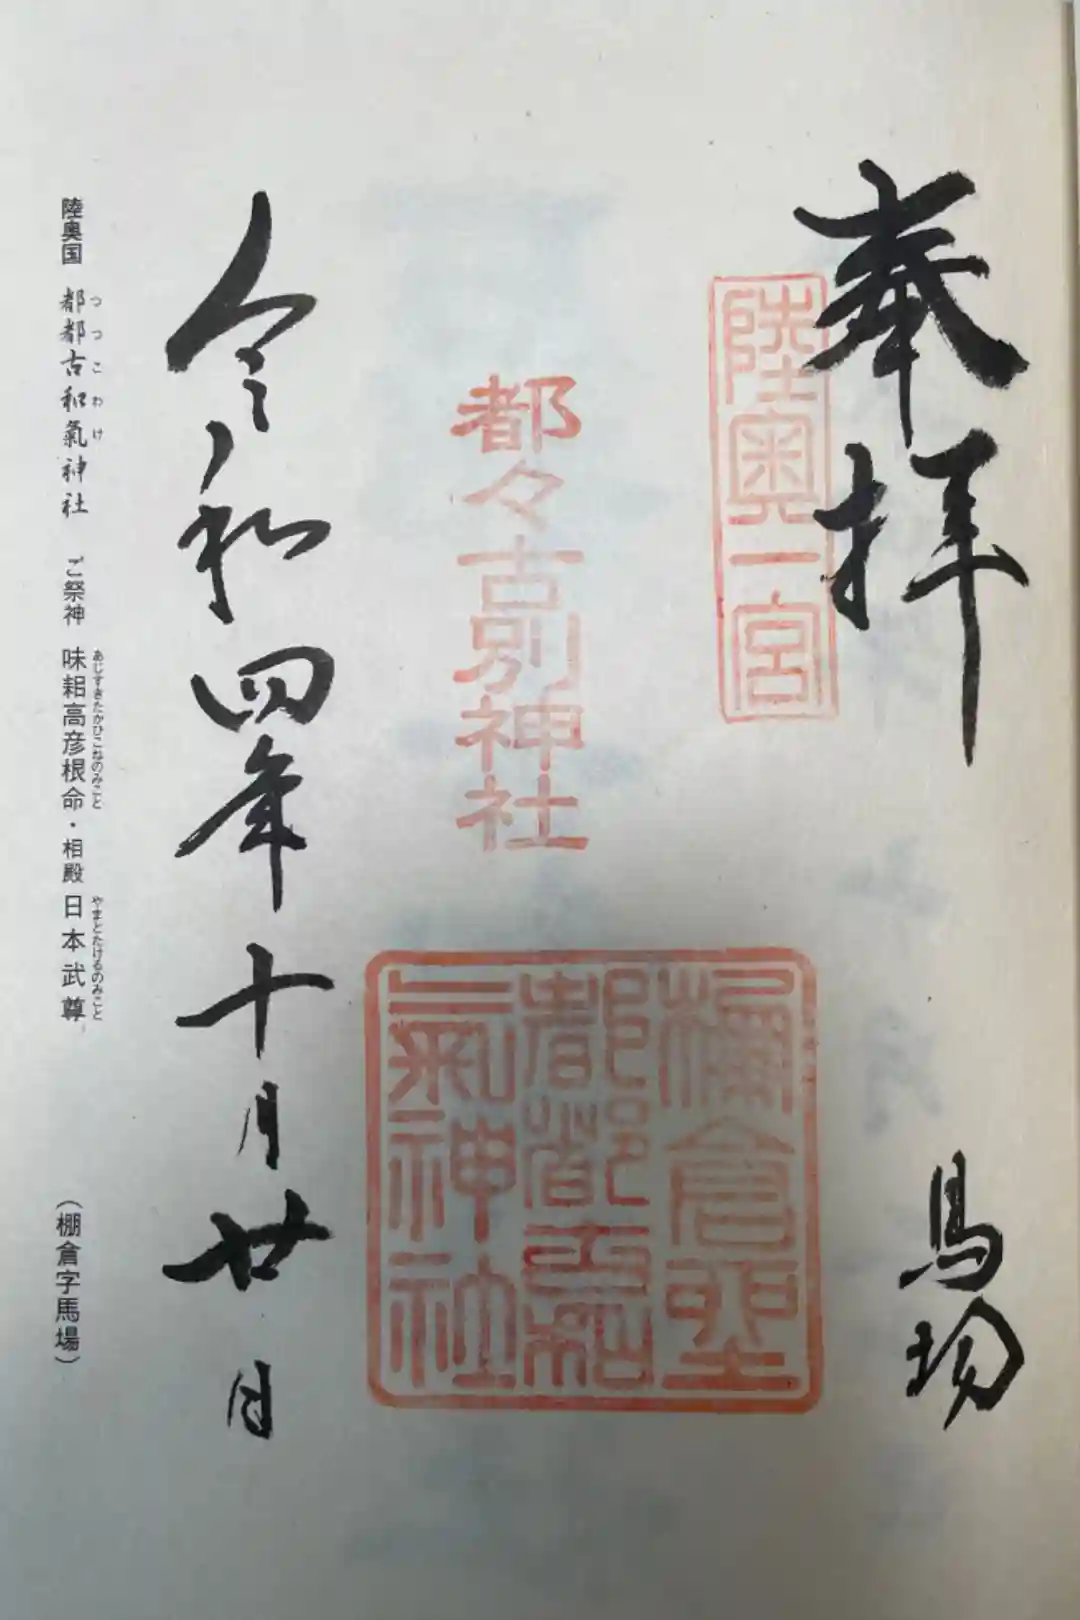 奉拝
陸奥一宮
馬場
都々古別神社
棚倉
都都古和
氣神社
令和四年十月廿日
陸奥国 都都古和氣神社 ご祭神 味耜高彦根命・相殿 日本武尊 (棚倉字馬場)
つつこわけ
あじすきたかひこねのみこと
やまとたけるのみこと